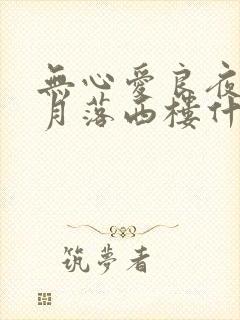 無心愛良夜
月落西樓什
筑夢者